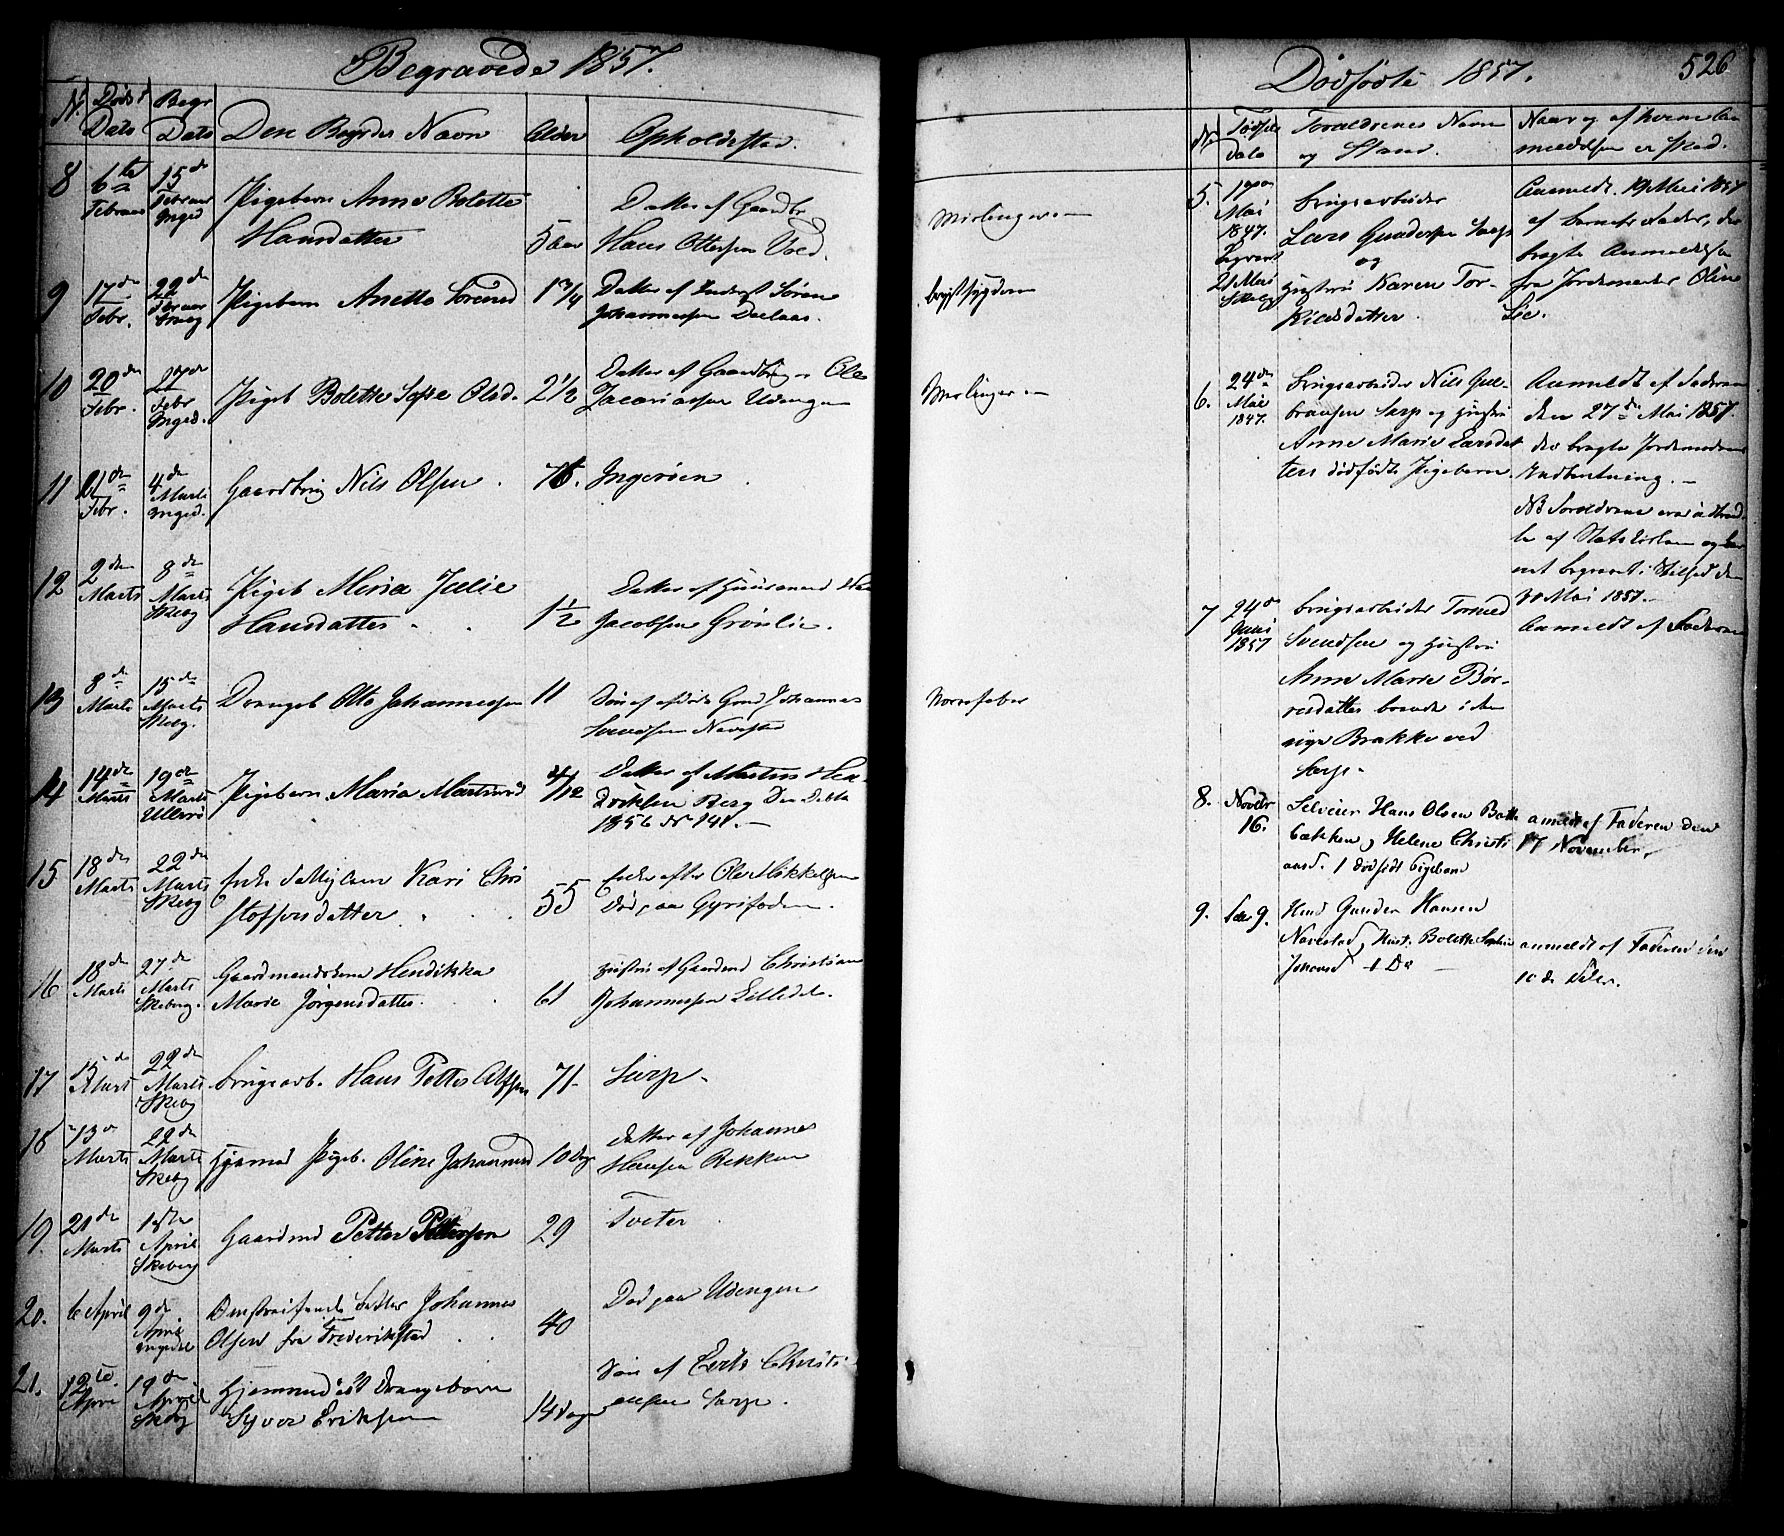 Begravede 1857.
N. Døds Dato
Begr Dato
Den Begrdes Navn
Alder
Opholdssted.
8
6te Februar
15de Februar Inged
Pigebarn Anne Bolette
Hansdatter
5 aar
Datter af Gaardbr
Hans Ottersen Voed.
Meslinger
9
17de Febr.
22de Februar Skebg
Pigebarn Anette Sørensd
1 3/4
Datter af Inderst Søren
Johannessen
Brystsygdom
10
20de Febr.
27de Febr Inged.
Pigeb Bolette Sofie Olsd.
2 1/2
Datter af Gaardbrug. Ole
Zacariassen Udengen
Meslinger
11
21de Febr.
4de Marts Inged.
Gaardbrug Nils Olsen
76.
Ingerøen
12
2den Marts
8de Marts Skebg
Pigeb Maria Julie
Hansdatter
1 1/2
Datter af Huusmand
Jacobsen Grønlie.
13
8de Marts
15de Marts Skebg.
Drengeb Otto Johannessen
11
Søn af afdøde Grmd Johannes
Svendsen Navestad
Nervefeber
14
14de Marts
19de Marts Ullerø
Pigebarn Maria Martinsd
4/12
Datter af Martin Hen-
driksen Berg Den Døbte
1856 No 141.
15
18de Marts
22de Marts Skebg
Enke Kari Chri
stoffersdatter
55
Enke efter Ole Mikkelsen
Død paa
16
18de Marts
27de Marts Skeberg.
Gaardmandskone Hendikka
Marie Jørgensdatter.
61
Hustru af Gaardmd Christian
Johannessen Lilledal.
17
15de Marts
22de Marts Skebg
Brugsarb. Hans Petter Olssen
71.
Sarp.
18
13de Marts
22de Marts Skebg
Hjemmd Pigeb. Oline Johannesd
10 dage
Datter af Johannes
Hansen Bekken
19.
21de Marts
1ste April Skeberg
Gaardmd Petter Pettersen
29
Tveter
20.
6 April
9de April Ingedal
Omstreifende Johannes
Olsen fra Frederikstad
40
Død paa Udengen
21.
12te April
19de April Skebg
Hjemmedøbt Drengebarn
Syver Eriksen
14 dage
Søn af Erik Christi
ansen Sarp.
Dødfødte 1857.
526
No
Fødsels dato
Forældrenes Navn
og Stand.
Naar og af hvem An
meldelsen er skeed.
5.
17de Mai 1847. Begravet 21 Mai Skebg
Brugsarbeider
Lars Gundersen Sarp
og
Hustru Karen Tor-
kildsdatter.
Anmeldt. 19 Mai 1857
af Barnets Fader, der
bragte Anmeldelse
fra Jordemoder Oline
Lie.
6.
24de Mai 1847.
Brugsarbeider Nils Gul-
bransen Sarp og Hustru
Anne Marie Larsdat
ters dødfødte Pigebarn
Anmeldt af Faderen
den 27de Mai 1857.
der bragte Jordemoderens
Indberetning.
NB Forældrene ere udtraad-
te af Statskirken og bar
net begravet i Stilhed den
30 Mai 1857.
7
24de Juni 1857
Brugsarbeider Tormod
Svendsen og Hustru
Anne Marie Bør-
resdatter boende i den
nye Brakke ved
Sarp.
Anmeldt af Faderen
8.
Novebr 16.
Selveier Hans Olsen Bøtte
bækken, Helene Christi
ansd. 1 dødfødt Pigebarn
anmeldt af Faderen den
17 November.
9.
Decr 9.
Hmd Gunder Hansen
Navestad, Hust. Bolette Sophie
Johansd 1 Do
anmeldt af Faderen den
10 de Deber.